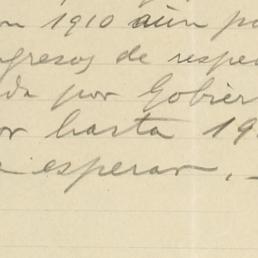 on 1910 aún po
ngresos de respe
da por Gobier
or hasta 19
e esperar. –